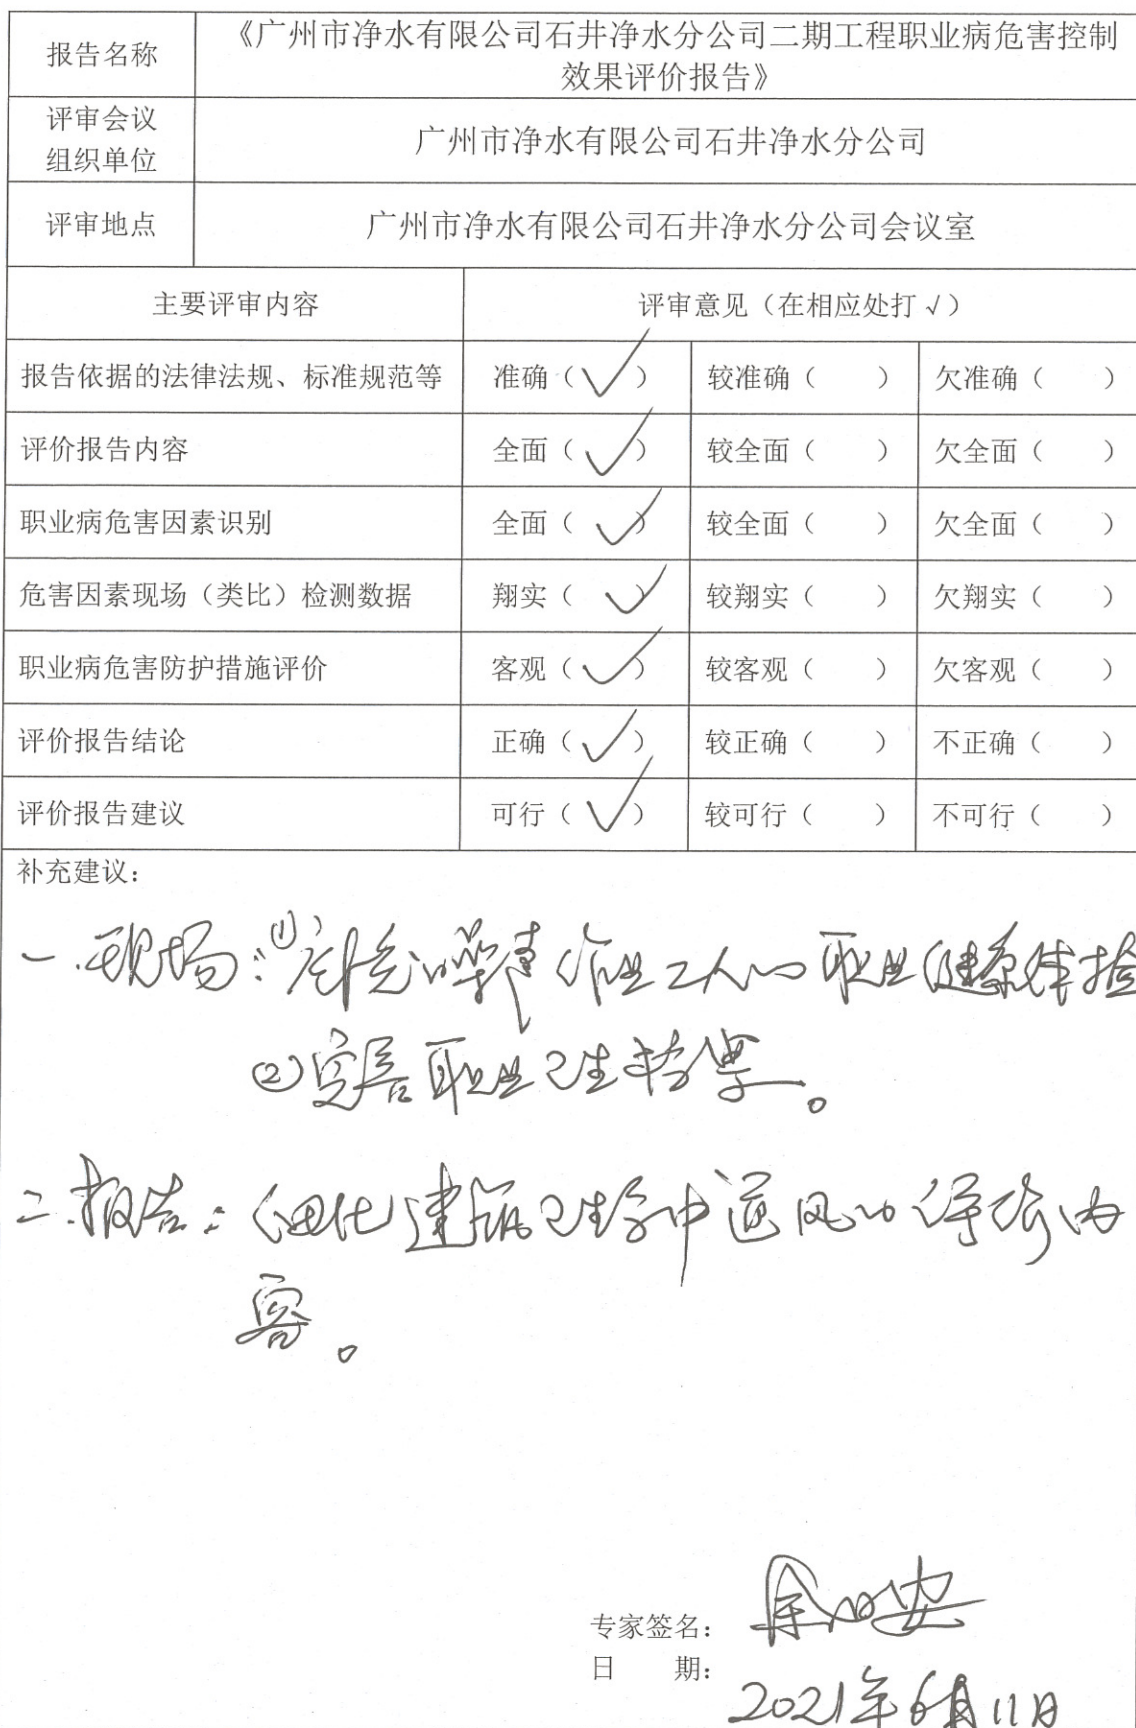 报告名称
《广州市净水有限公司石井净水分公司二期工程职业病危害控制
效果评价报告》
评审会议
组织单位
广州市净水有限公司石井净水分公司
评审地点
广州市净水有限公司石井净水分公司会议室
主要评审内容 评审意见（在相应处打√）
报告依据的法律法规、标准规范等 准确（✓） 较准确（ ） 欠准确（ ）
评价报告内容 全面（✓） 较全面（ ） 欠全面（ ）
职业病危害因素识别 全面（✓） 较全面（ ） 欠全面（ ）
危害因素现场（类比）检测数据 翔实（✓） 较翔实（ ） 欠翔实（ ）
职业病危害防护措施评价 客观（✓） 较客观（ ） 欠客观（ ）
评价报告结论 正确（✓） 较正确（ ） 不正确（ ）
评价报告建议 可行（✓） 较可行（ ） 不可行（ ）
补充建议：
一.现场：(1) 噪声作业工人的职业健康体检
(2)完善职业卫生档案。
二.报告：细化建筑卫生学中通风的评价内
容。
专家签名：
日 期：
2021年6月11日